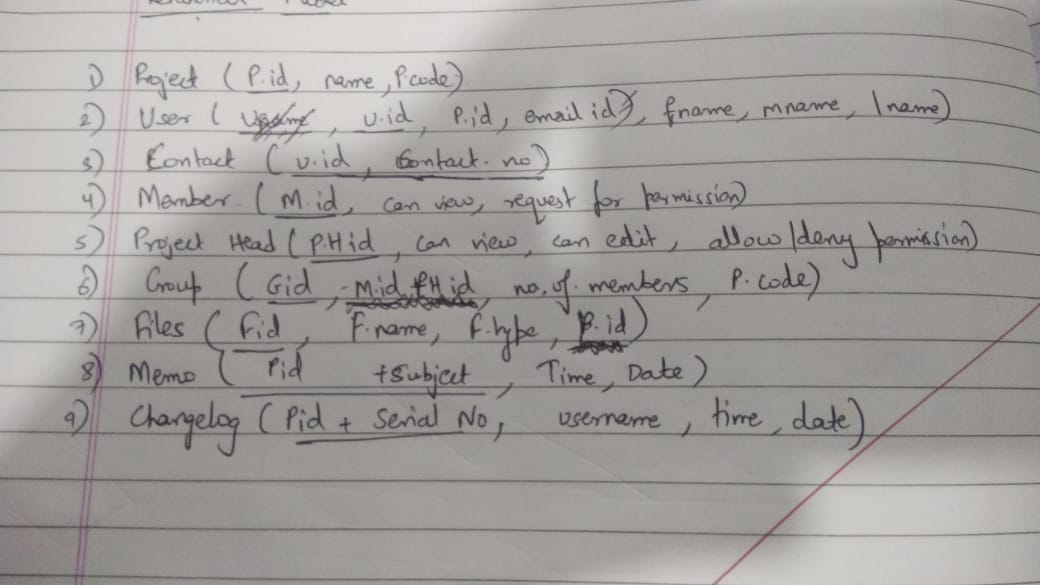 1) Project ( P.id, name, P.code)
2) User ( u.id, P.id, email id), fname, mname, lname)
3) Contact ( u.id, Contact. no)
4) Member ( M.id, can view, request for permission)
5) Project Head ( P.H.id, can view, can edit, allow/deny permission)
6) Group ( Gid, M.id, PH id, no. of. members, P. code)
7) Files ( Fid, F.name, F.type, P.id)
8) Memo ( Pid +Subject, Time, Date)
9) Changelog ( Pid + Serial No, username, time, date)